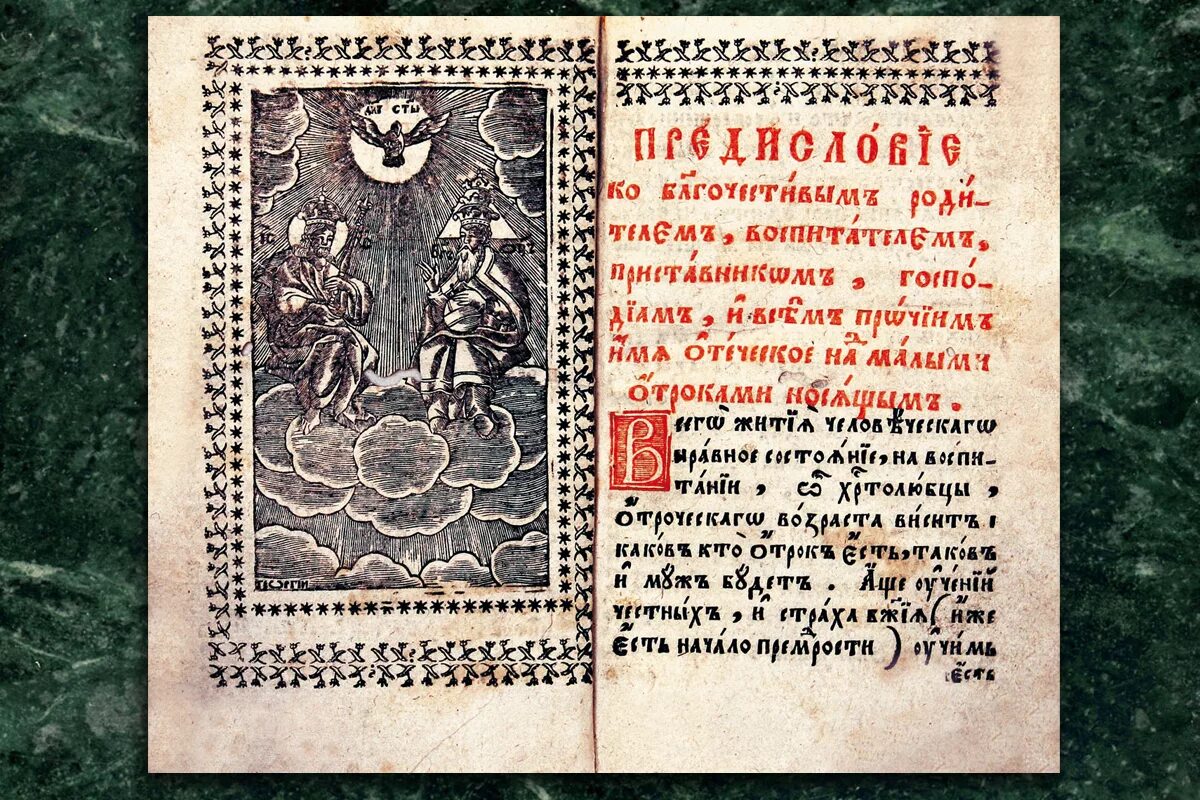 ДХ҃Ъ СТЫ
ІС
ПРЕ́ДИСЛО́ВЇЕ
ко бл҃гочести́вымъ роди́-
телемъ, воспита́телемъ,
приста́вникѡмъ, госпо́-
дїамъ, и҆ всѣ̑мъ прѡ́чїимъ
и҆́мѧ ѻ҆те́ческое над̾ ма́лыми
ѻ҆́троками носѧ́щымъ.
Всегѡ̀ житїѧ̀ человѣ́ческагѡ
нра́вное состоѧ́нїе, на воспи-
та́нїи, ѽ хр҇толю́бцы,
ѻ҆́троческагѡ во́зраста ви́ситъ:
како́въ кто̀ ѻ҆́трокъ є҆́сть, тако́въ
и҆ мꙋ́жъ бꙋ́детъ. А҆́ще ᲂу҆че́нїй
че́стныхъ, и҆ стра́ха бж҃їѧ (и҆́же
є҆́сть нача́ло премрⷣости) ᲂу҆чи́мь
є҆́сть